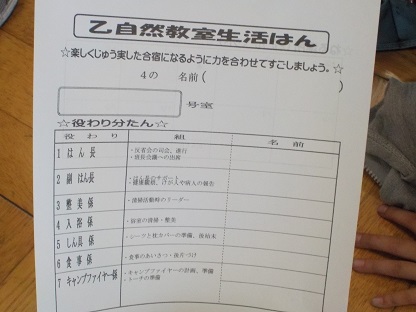 乙自然教室生活はん
☆楽しくじゅう実した合宿になるように力を合わせてすごしましょう。☆
4の 名前( )
号室
☆役わり分たん☆
役わり 組 名前
1 はん長 ・反省会の司会、進行
・班長会議への出席
2 副はん長 ・はん長のサポート
・健康観察、けが人や病人の報告
3 整美係 ・清掃活動時のリーダー
4 入浴係 ・浴室の清掃・整美
5 しん具係 ・シーツと枕カバーの準備、後始末
6 食事係 ・食事のあいさつ・後片づけ
7 キャンプファイヤー係 ・キャンプファイヤーの計画、準備
・トーチの準備